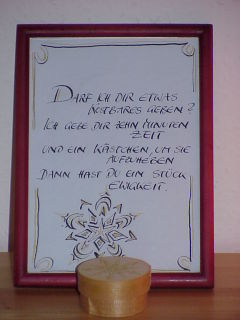 DARF ICH DIR ETWAS
KOSTBARES GEBEN?
ICH GEBE DIR ZEHN MINUTEN
ZEIT
UND EIN KÄSTCHEN, UM SIE
AUFZUHEBEN
DANN HAST DU EIN STÜCK
EWIGKEIT.